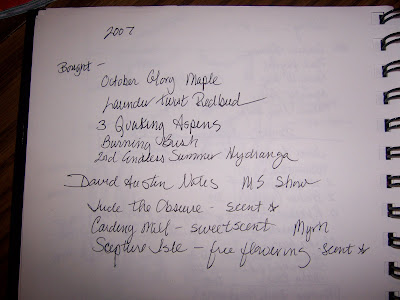 2007
Bought -
October Glory Maple
Lavender Twist Redbud
3 Quaking Aspens
Burning Bush
2nd Endless Summer Hydranga
David Austin Notes MS Show
Jude the Obscure - scent ☆
Carding Mill - sweetscent Myrrh
Scepture Isle - free flowering - scent ☆